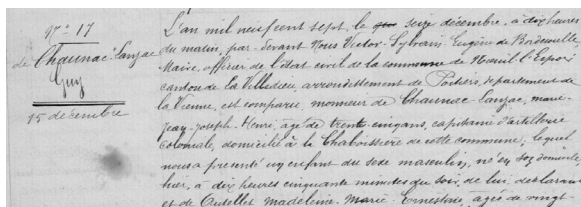 N° 17
de Chaunac-Lanzac
Guy
15 décembre
L'an mil neuf cent sept, le seize décembre, à dix heures
du matin, par-devant Nous Victor-Sylvain-Eugène de
Maire, officier de l'état civil de la commune de
canton de La Villedieu, arrondissement de Poitiers, département de
la Vienne, est comparu, monsieur de Chaunac-Lanzac, marie
jean-joseph-Henri, âgé de trente cinq ans, capitaine d'artillerie
coloniale, domicilié à la Chaboissière de cette commune, lequel
nous a présenté un enfant du sexe masculin, né en son domicile,
hier, à dix heures cinquante minutes du soir, de lui déclarant
et de Madeleine-Marie-Ernestine âgée de vingt-